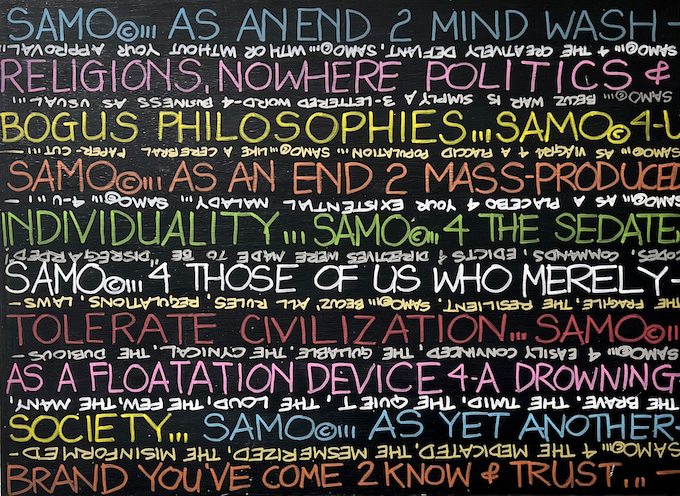 SAMO©... AS AN END 2 MIND WASH-
RELIGIONS, NOWHERE POLITICS &
BOGUS PHILOSOPHIES... SAMO© 4-U
SAMO©... AS AN END 2 MASS-PRODUCED
INDIVIDUALITY... SAMO©... 4 THE SEDATE,
SAMO©... 4 THOSE OF US WHO MERELY-
TOLERATE CIVILIZATION... SAMO©...
AS A FLOATATION DEVICE 4-A DROWNING-
SOCIETY... SAMO©... AS YET ANOTHER-
BRAND YOU'VE COME 2 KNOW & TRUST... —
SAMO©... 4 THE MEDICATED, THE MESMERIZED, THE MISINFORMED-
THE BRAVE, THE TIMID, THE QUIET, THE LOUD, THE FEW, THE MANY,
SAMO©... 4 EASILY CONVINCED, THE GULLABLE, THE CYNICAL, THE DUBIOUS-
THE FRAGILE, THE RESILIENT, SAMO©... BECUZ, ALL RULES, REGULATIONS, LAWS-
CODES, COMMANDS, EDICTS & DIRECTIVES WERE MADE TO BE DISREGARDED,
AS A PLACEBO 4 YOUR EXISTENTIAL MALADY SAMO©... 4-U... —
SAMO©... AS VIAGRA 4 A FLACCID POPULATION SAMO©... LIKE A CEREBRAL PAPER-CUT... —
SAMO©... BECUZ WAR IS SIMPLY A 3-LETTERED WORD-4-BUSINESS AS USUAL...
SAMO©... 4 THE CREATIVELY DEFIANT, SAMO©... WITH OR WITHOUT YOUR APPROVAL...